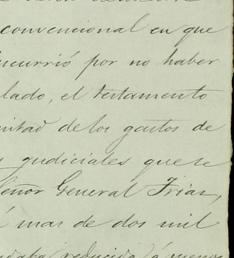 convencional en que
incurrió por no haber
lado, el testamento
mitad de los gastos de
judiciales que se
Señor General Frias,
á mas de dos mil
reducida á menos